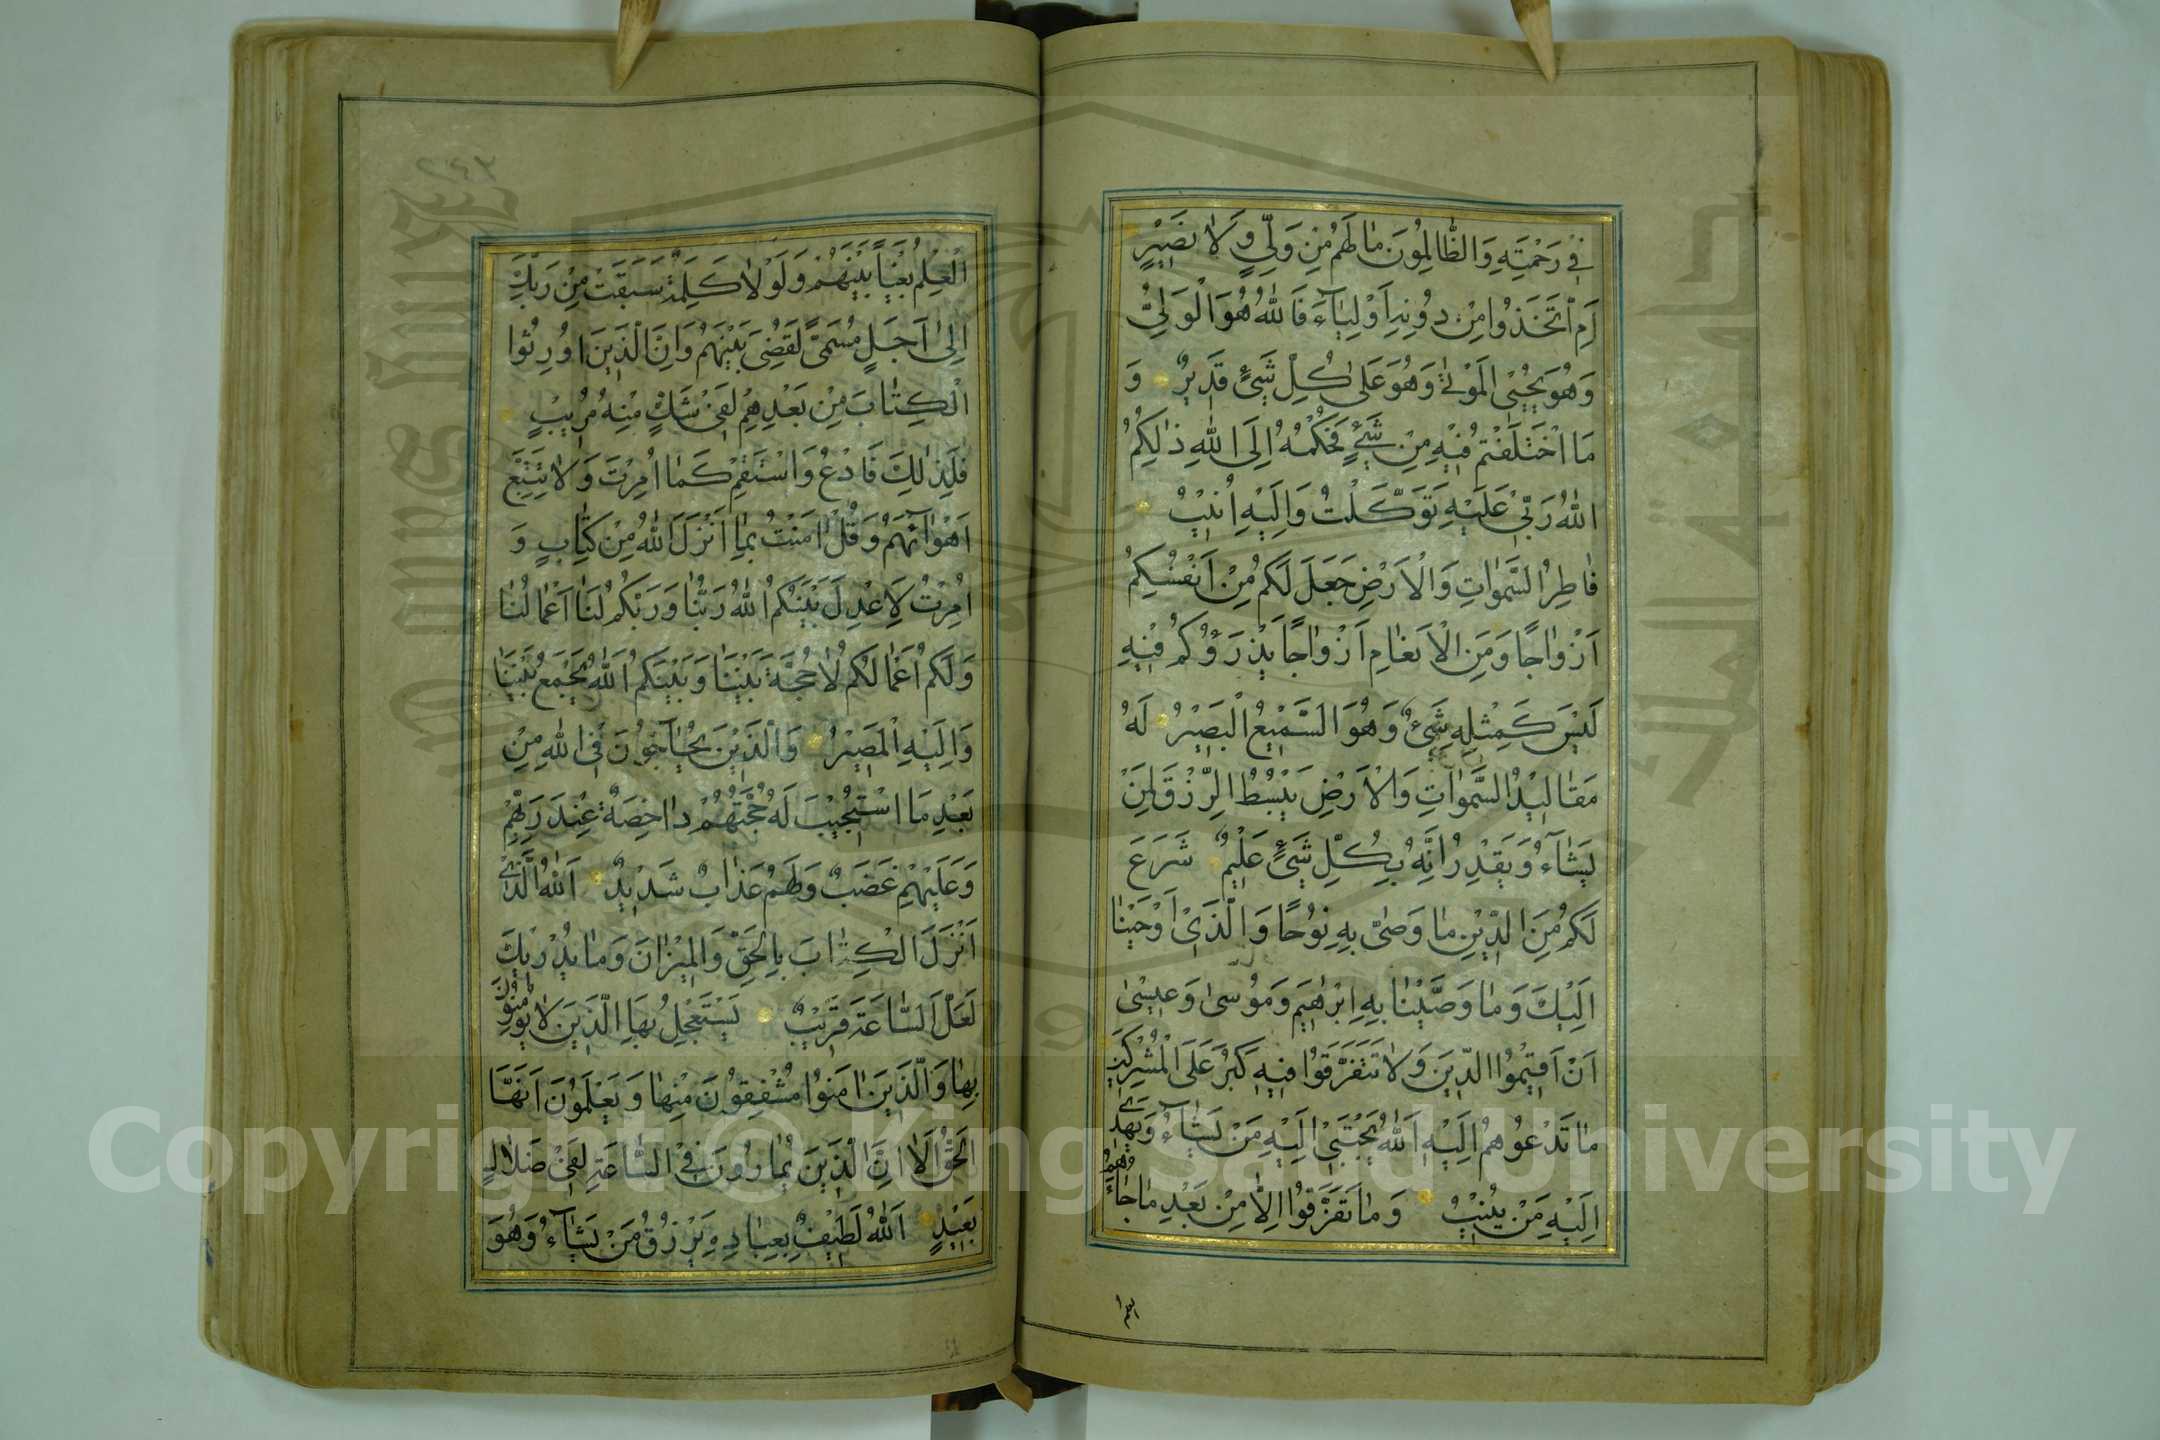 فِي رَحْمَتِهِ وَالظَّالِمُونَ مَا لَهُمْ مِنْ وَلِيٍّ وَلَا نَصِيرٍ
اَمِ اتَّخَذُوا مِنْ دُونِهِ اَوْلِيَاءَ فَاللّٰهُ هُوَ الْوَلِيُّ
وَهُوَ يُحْيِي الْمَوْتٰى وَهُوَ عَلٰى كُلِّ شَيْءٍ قَدِيرٌ وَ
مَا اخْتَلَفْتُمْ فِيهِ مِنْ شَيْءٍ فَحُكْمُهُ اِلَى اللّٰهِ ذٰلِكُمُ
اللّٰهُ رَبِّي عَلَيْهِ تَوَكَّلْتُ وَاِلَيْهِ اُنِيبُ
فَاطِرُ السَّمٰوَاتِ وَالْاَرْضِ جَعَلَ لَكُمْ مِنْ اَنْفُسِكُمْ
اَزْوَاجًا وَمِنَ الْاَنْعَامِ اَزْوَاجًا يَذْرَؤُكُمْ فِيهِ
لَيْسَ كَمِثْلِهِ شَيْءٌ وَهُوَ السَّمِيعُ الْبَصِيرُ لَهُ
مَقَالِيدُ السَّمٰوَاتِ وَالْاَرْضِ يَبْسُطُ الرِّزْقَ لِمَنْ
يَشَاءُ وَيَقْدِرُ اِنَّهُ بِكُلِّ شَيْءٍ عَلِيمٌ شَرَعَ
لَكُمْ مِنَ الدِّينِ مَا وَصّٰى بِهِ نُوحًا وَالَّذِي اَوْحَيْنَا
اِلَيْكَ وَمَا وَصَّيْنَا بِهِ اِبْرٰهِيمَ وَمُوسٰى وَعِيسٰى
اَنْ اَقِيمُوا الدِّينَ وَلَا تَتَفَرَّقُوا فِيهِ كَبُرَ عَلَى الْمُشْرِكِينَ
مَا تَدْعُوهُمْ اِلَيْهِ اَللّٰهُ يَجْتَبِي اِلَيْهِ مَنْ يَشَاءُ وَيَهْدِي
اِلَيْهِ مَنْ يُنِيبُ وَمَا تَفَرَّقُوا اِلَّا مِنْ بَعْدِ مَا جَاءَهُمُ
العلم
٢٤٣
الْعِلْمُ بَغْيًا بَيْنَهُمْ وَلَوْلَا كَلِمَةٌ سَبَقَتْ مِنْ رَبِّكَ
اِلٰى اَجَلٍ مُسَمًّى لَقُضِيَ بَيْنَهُمْ وَاِنَّ الَّذِينَ اُورِثُوا
الْكِتَابَ مِنْ بَعْدِهِمْ لَفِي شَكٍّ مِنْهُ مُرِيبٍ
فَلِذٰلِكَ فَادْعُ وَاسْتَقِمْ كَمَا اُمِرْتَ وَلَا تَتَّبِعْ
اَهْوَاءَهُمْ وَقُلْ اٰمَنْتُ بِمَا اَنْزَلَ اللّٰهُ مِنْ كِتَابٍ وَ
اُمِرْتُ لِاَعْدِلَ بَيْنَكُمُ اللّٰهُ رَبُّنَا وَرَبُّكُمْ لَنَا اَعْمَالُنَا
وَلَكُمْ اَعْمَالُكُمْ لَا حُجَّةَ بَيْنَنَا وَبَيْنَكُمْ اَللّٰهُ يَجْمَعُ بَيْنَنَا
وَاِلَيْهِ الْمَصِيرُ وَالَّذِينَ يُحَاجُّونَ فِي اللّٰهِ مِنْ
بَعْدِ مَا اسْتُجِيبَ لَهُ حُجَّتُهُمْ دَاحِضَةٌ عِنْدَ رَبِّهِمْ
وَعَلَيْهِمْ غَضَبٌ وَلَهُمْ عَذَابٌ شَدِيدٌ اَللّٰهُ الَّذِي
اَنْزَلَ الْكِتَابَ بِالْحَقِّ وَالْمِيزَانَ وَمَا يُدْرِيكَ
لَعَلَّ السَّاعَةَ قَرِيبٌ يَسْتَعْجِلُ بِهَا الَّذِينَ لَا يُؤْمِنُونَ
بِهَا وَالَّذِينَ اٰمَنُوا مُشْفِقُونَ مِنْهَا وَيَعْلَمُونَ اَنَّهَا
الْحَقُّ اَلَا اِنَّ الَّذِينَ يُمَارُونَ فِي السَّاعَةِ لَفِي ضَلَالٍ
بَعِيدٍ اَللّٰهُ لَطِيفٌ بِعِبَادِهِ يَرْزُقُ مَنْ يَشَاءُ وَهُوَ
Copyright © King Saud University